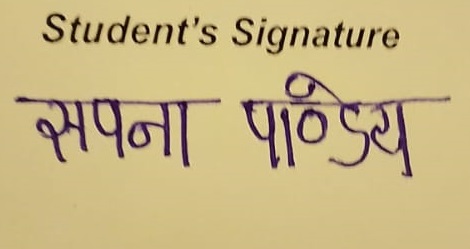 Student's Signature
सपना पाण्डेय